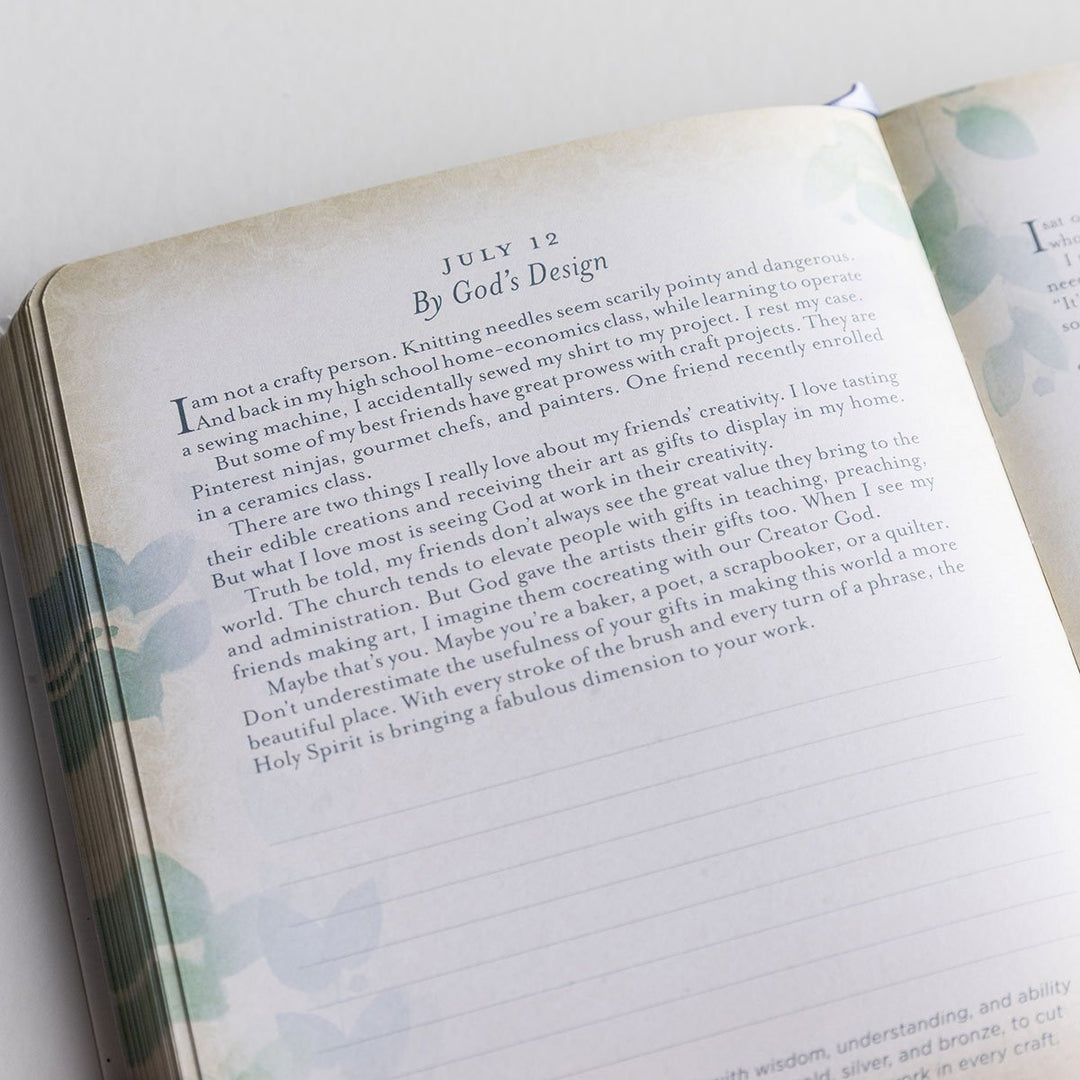 JULY 12
By God's Design
I am not a crafty person. Knitting needles seem scarily pointy and dangerous.
And back in my high school home-economics class, while learning to operate
a sewing machine, I accidentally sewed my shirt to my project. I rest my case.
But some of my best friends have great prowess with craft projects. They are
Pinterest ninjas, gourmet chefs, and painters. One friend recently enrolled
in a ceramics class.
There are two things I really love about my friends' creativity. I love tasting
their edible creations and receiving their art as gifts to display in my home.
But what I love most is seeing God at work in their creativity.
Truth be told, my friends don't always see the great value they bring to the
world. The church tends to elevate people with gifts in teaching, preaching,
and administration. But God gave the artists their gifts too. When I see my
friends making art, I imagine them cocreating with our Creator God.
Maybe that's you. Maybe you're a baker, a poet, a scrapbooker, or a quilter.
Don't underestimate the usefulness of your gifts in making this world a more
beautiful place. With every stroke of the brush and every turn of a phrase, the
Holy Spirit is bringing a fabulous dimension to your work.
with wisdom, understanding, and ability
silver, and bronze, to cut
in every craft.
I sat
who
I
need
"It
so